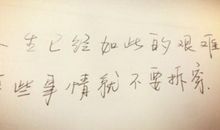 一生已经如此的艰难
有些事情就不要拆穿.